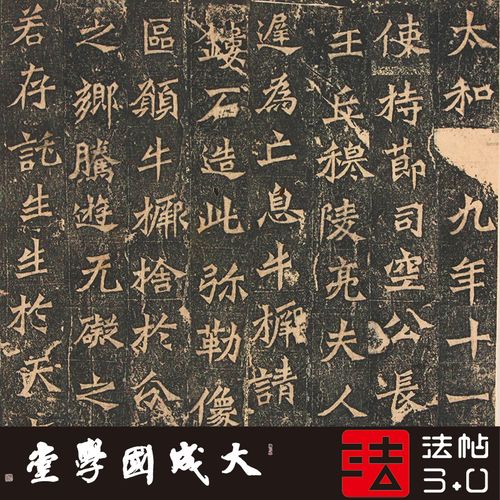 太和九年十一
使持節司空公長
王丘穆陵亮夫人
遲為亡息牛橛請
鏤石造此弥勒像
區願牛橛捨於分
之鄉騰遊无礙之
若存託生生於天
大成國學堂
法
法帖
3.0